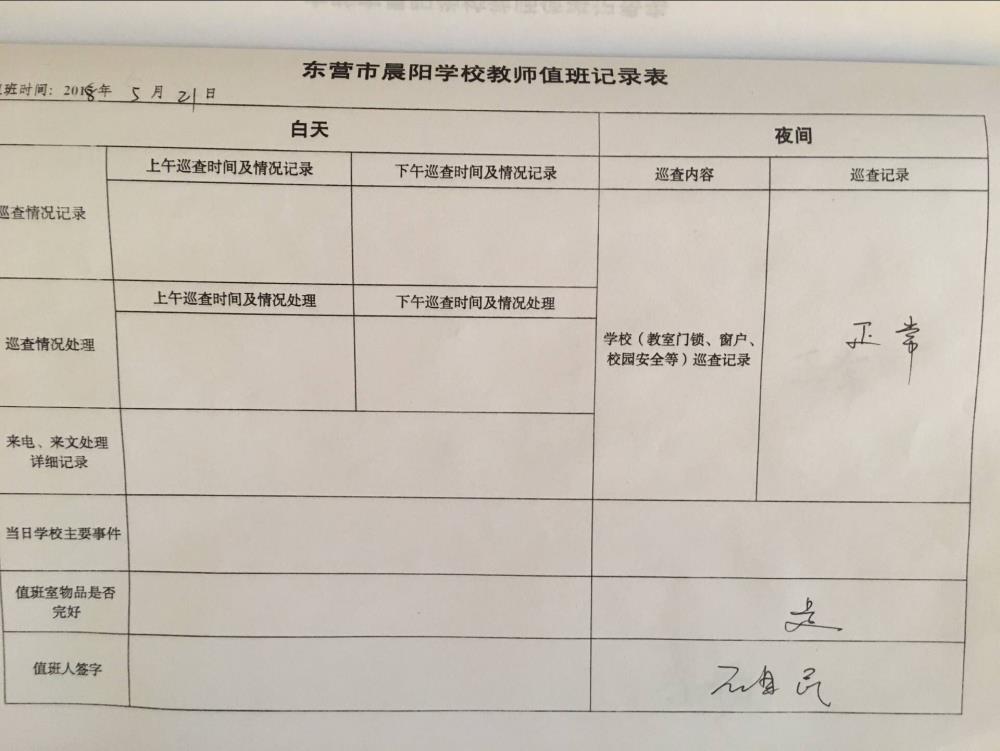 东营市晨阳学校教师值班记录表
班时间：2018年 5 月 21 日
白天
夜间
上午巡查时间及情况记录
下午巡查时间及情况记录
巡查内容
巡查记录
巡查情况记录
上午巡查时间及情况处理
下午巡查时间及情况处理
巡查情况处理
学校（教室门锁、窗户、
校园安全等）巡查记录
正常
来电、来文处理
详细记录
当日学校主要事件
值班室物品是否
完好
是
值班人签字